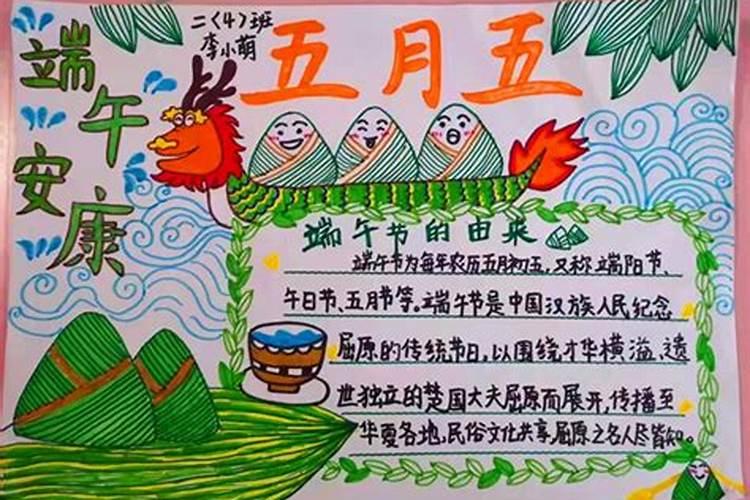 二〈4〉班
李小萌
五月五
端午安康
端午节的由来
端午节为每年农历五月初五,又称端阳节、
午日节、五月节等。端午节是中国汉族人民纪念
屈原的传统节日,以围绕才华横溢、遗
世独立的楚国大夫屈原而展开,传播至
华夏各地,民俗文化共享,屈原之名人尽皆知。